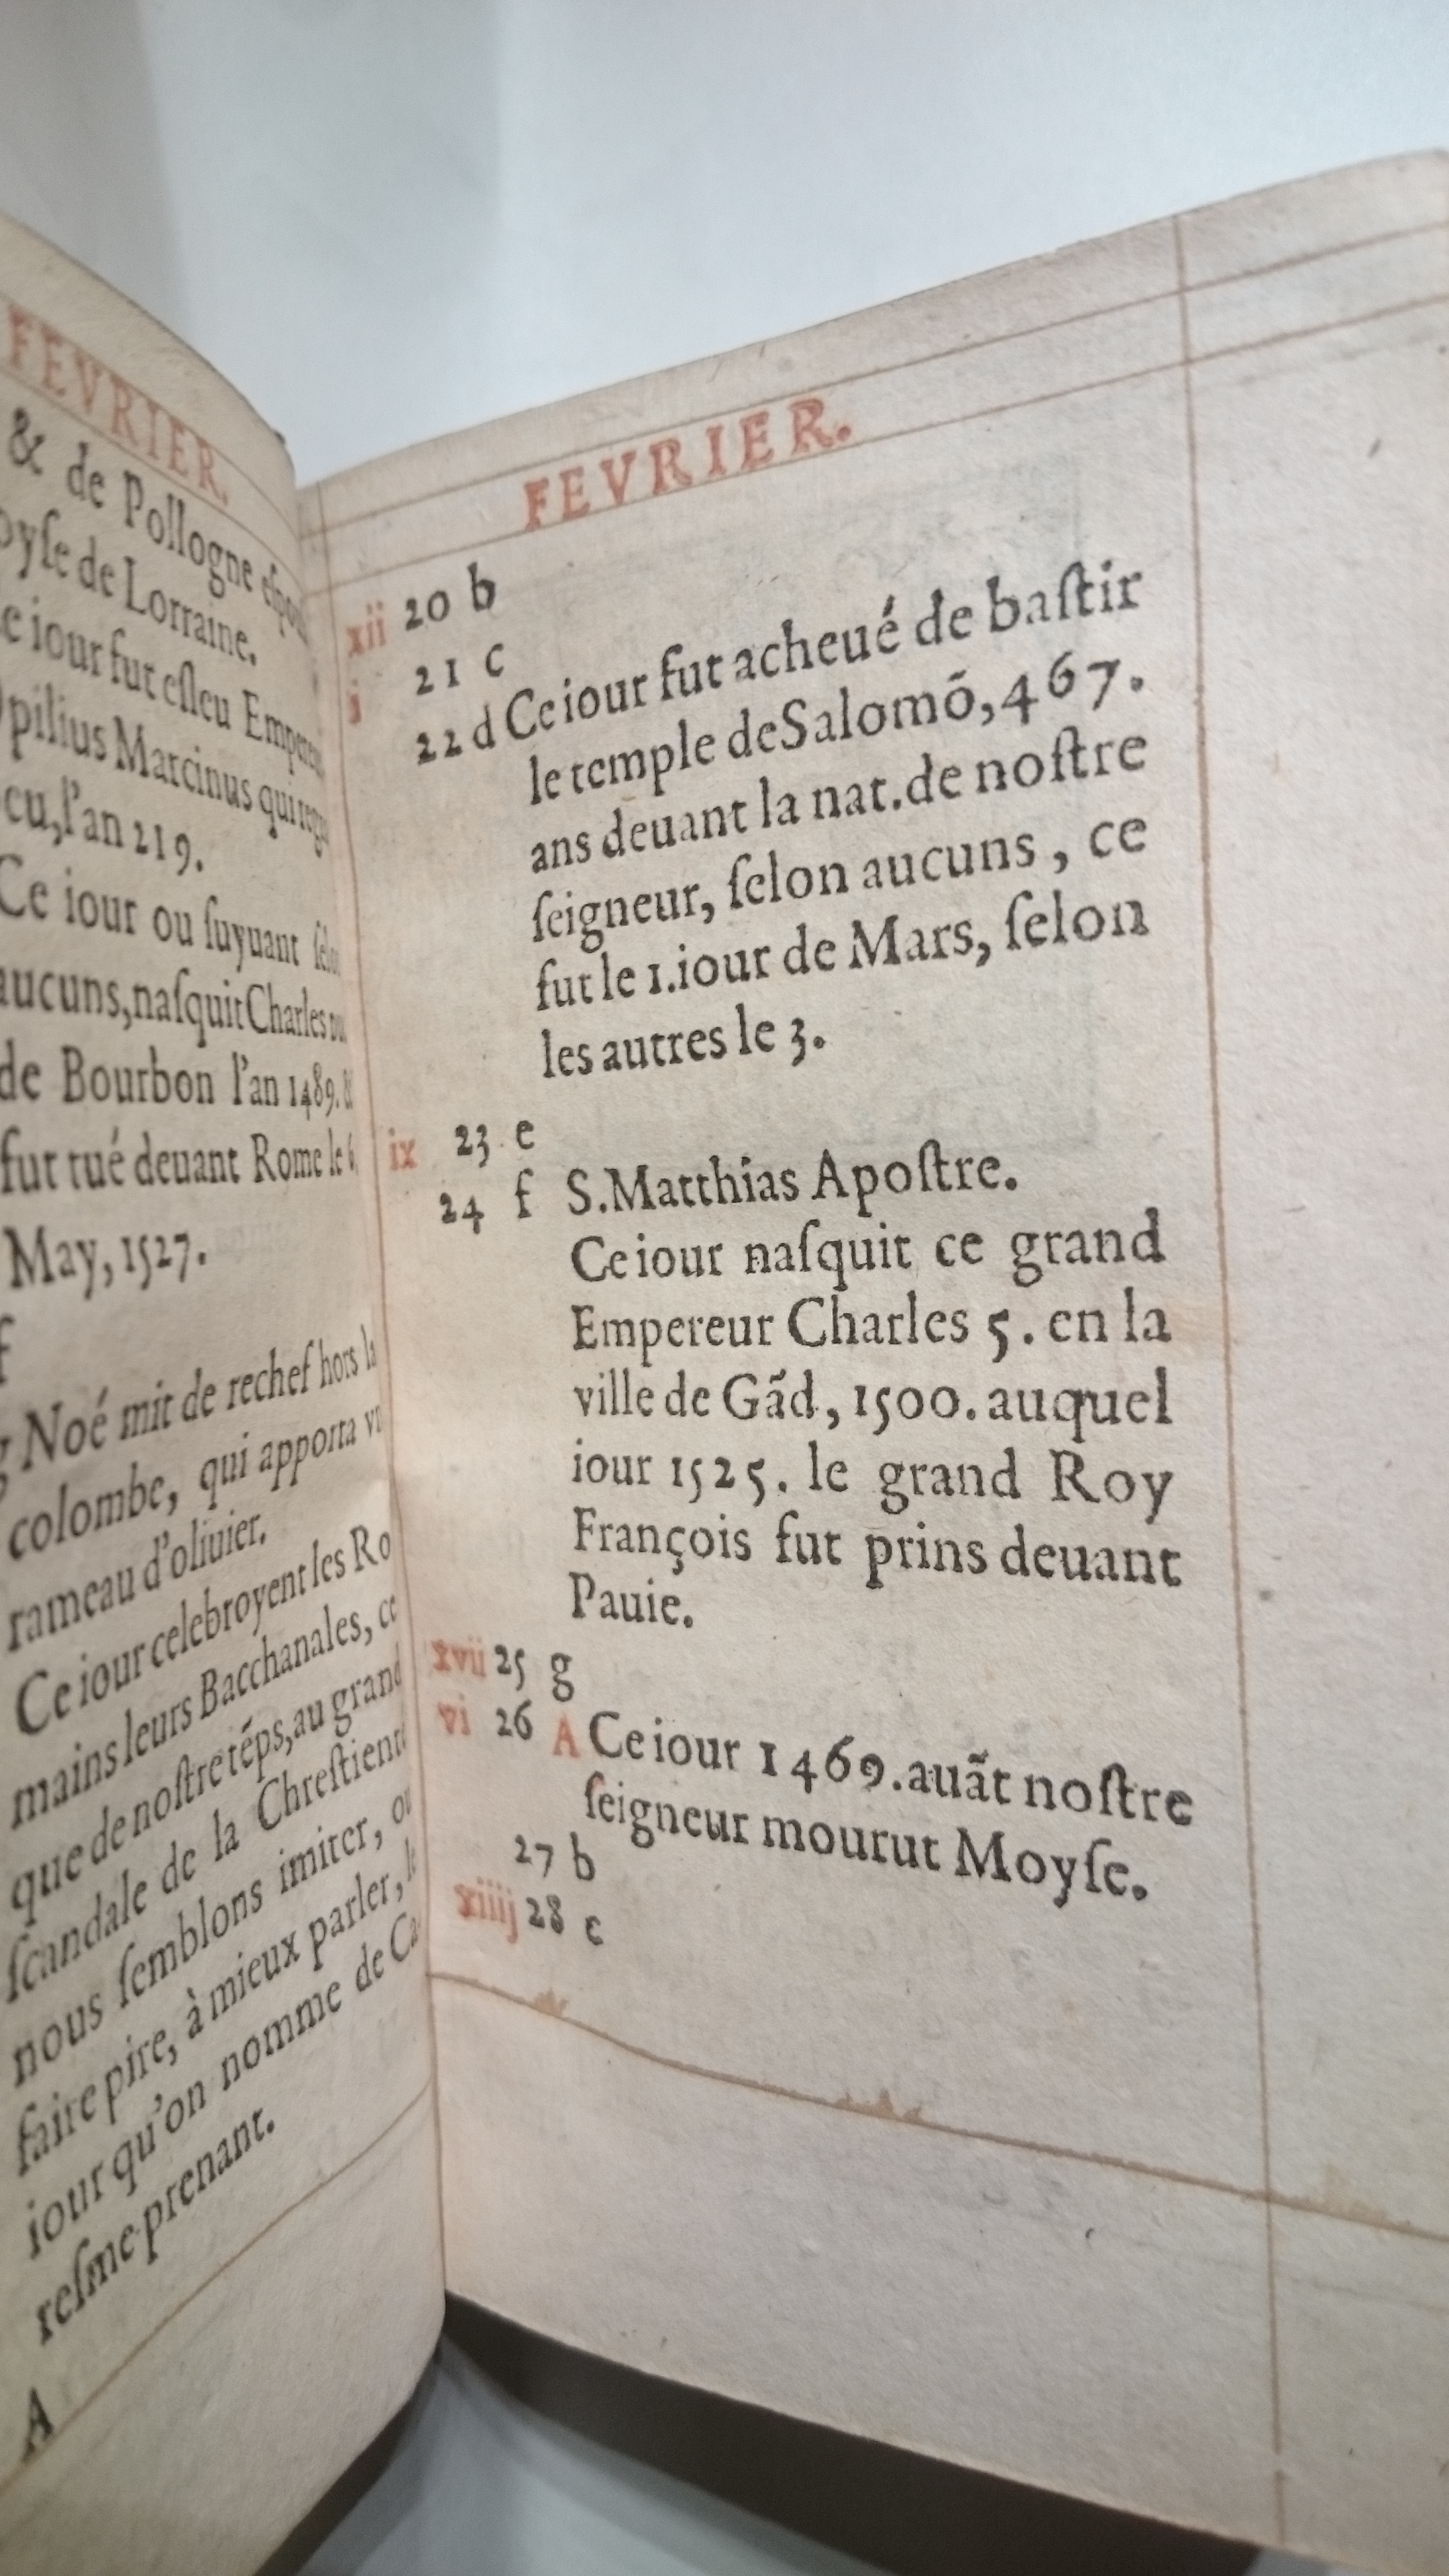 FEVRIER.
& de Pollogne
de Lorraine.
iour fut esleu
pilius Marcinus qui
l'an 219.
Ce iour ou suyuant
aucuns, nasquit Charles
de Bourbon l'an 1489.
fut tué deuant Rome le
May, 1527.
f
Noé mit de rechef hors
colombe, qui apporta
rameau d'oliuier.
Ce iour celebroyent les Ro
mains leurs Bacchanales, ce
que de nostre tẽps, au grand
scandale de la Chrestienté
nous semblons imiter, ou
faire pire, à mieux parler,
iour qu'on nomme de Ca
resme prenant.
A
FEVRIER.
xii 20 b
j 21 c
22 d Ce iour fut acheué de baſtir
le temple de Salomõ, 467.
ans deuant la nat. de noſtre
ſeigneur, ſelon aucuns, ce
fut le 1. iour de Mars, ſelon
les autres le 3.
ix 23 e
24 f S. Matthias Apoſtre.
Ce iour naſquit ce grand
Empereur Charles 5. en la
ville de Gãd, 1500. auquel
iour 1525. le grand Roy
François fut prins deuant
Pauie.
xvii 25 g
vi 26 A Ce iour 1469. auãt noſtre
ſeigneur mourut Moyſe.
27 b
xiiij 28 c